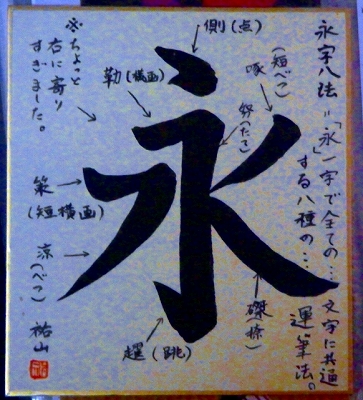 永字八法=「永」一字で全ての…文字に共通
する八種の…運筆法。
側(点)
啄(短べつ)
(たて)
勒(横画)
※ちょっと
右に寄り
すぎました。
永
策
(短横画)
(べつ)
磔(捺)
趯(跳)
祐山